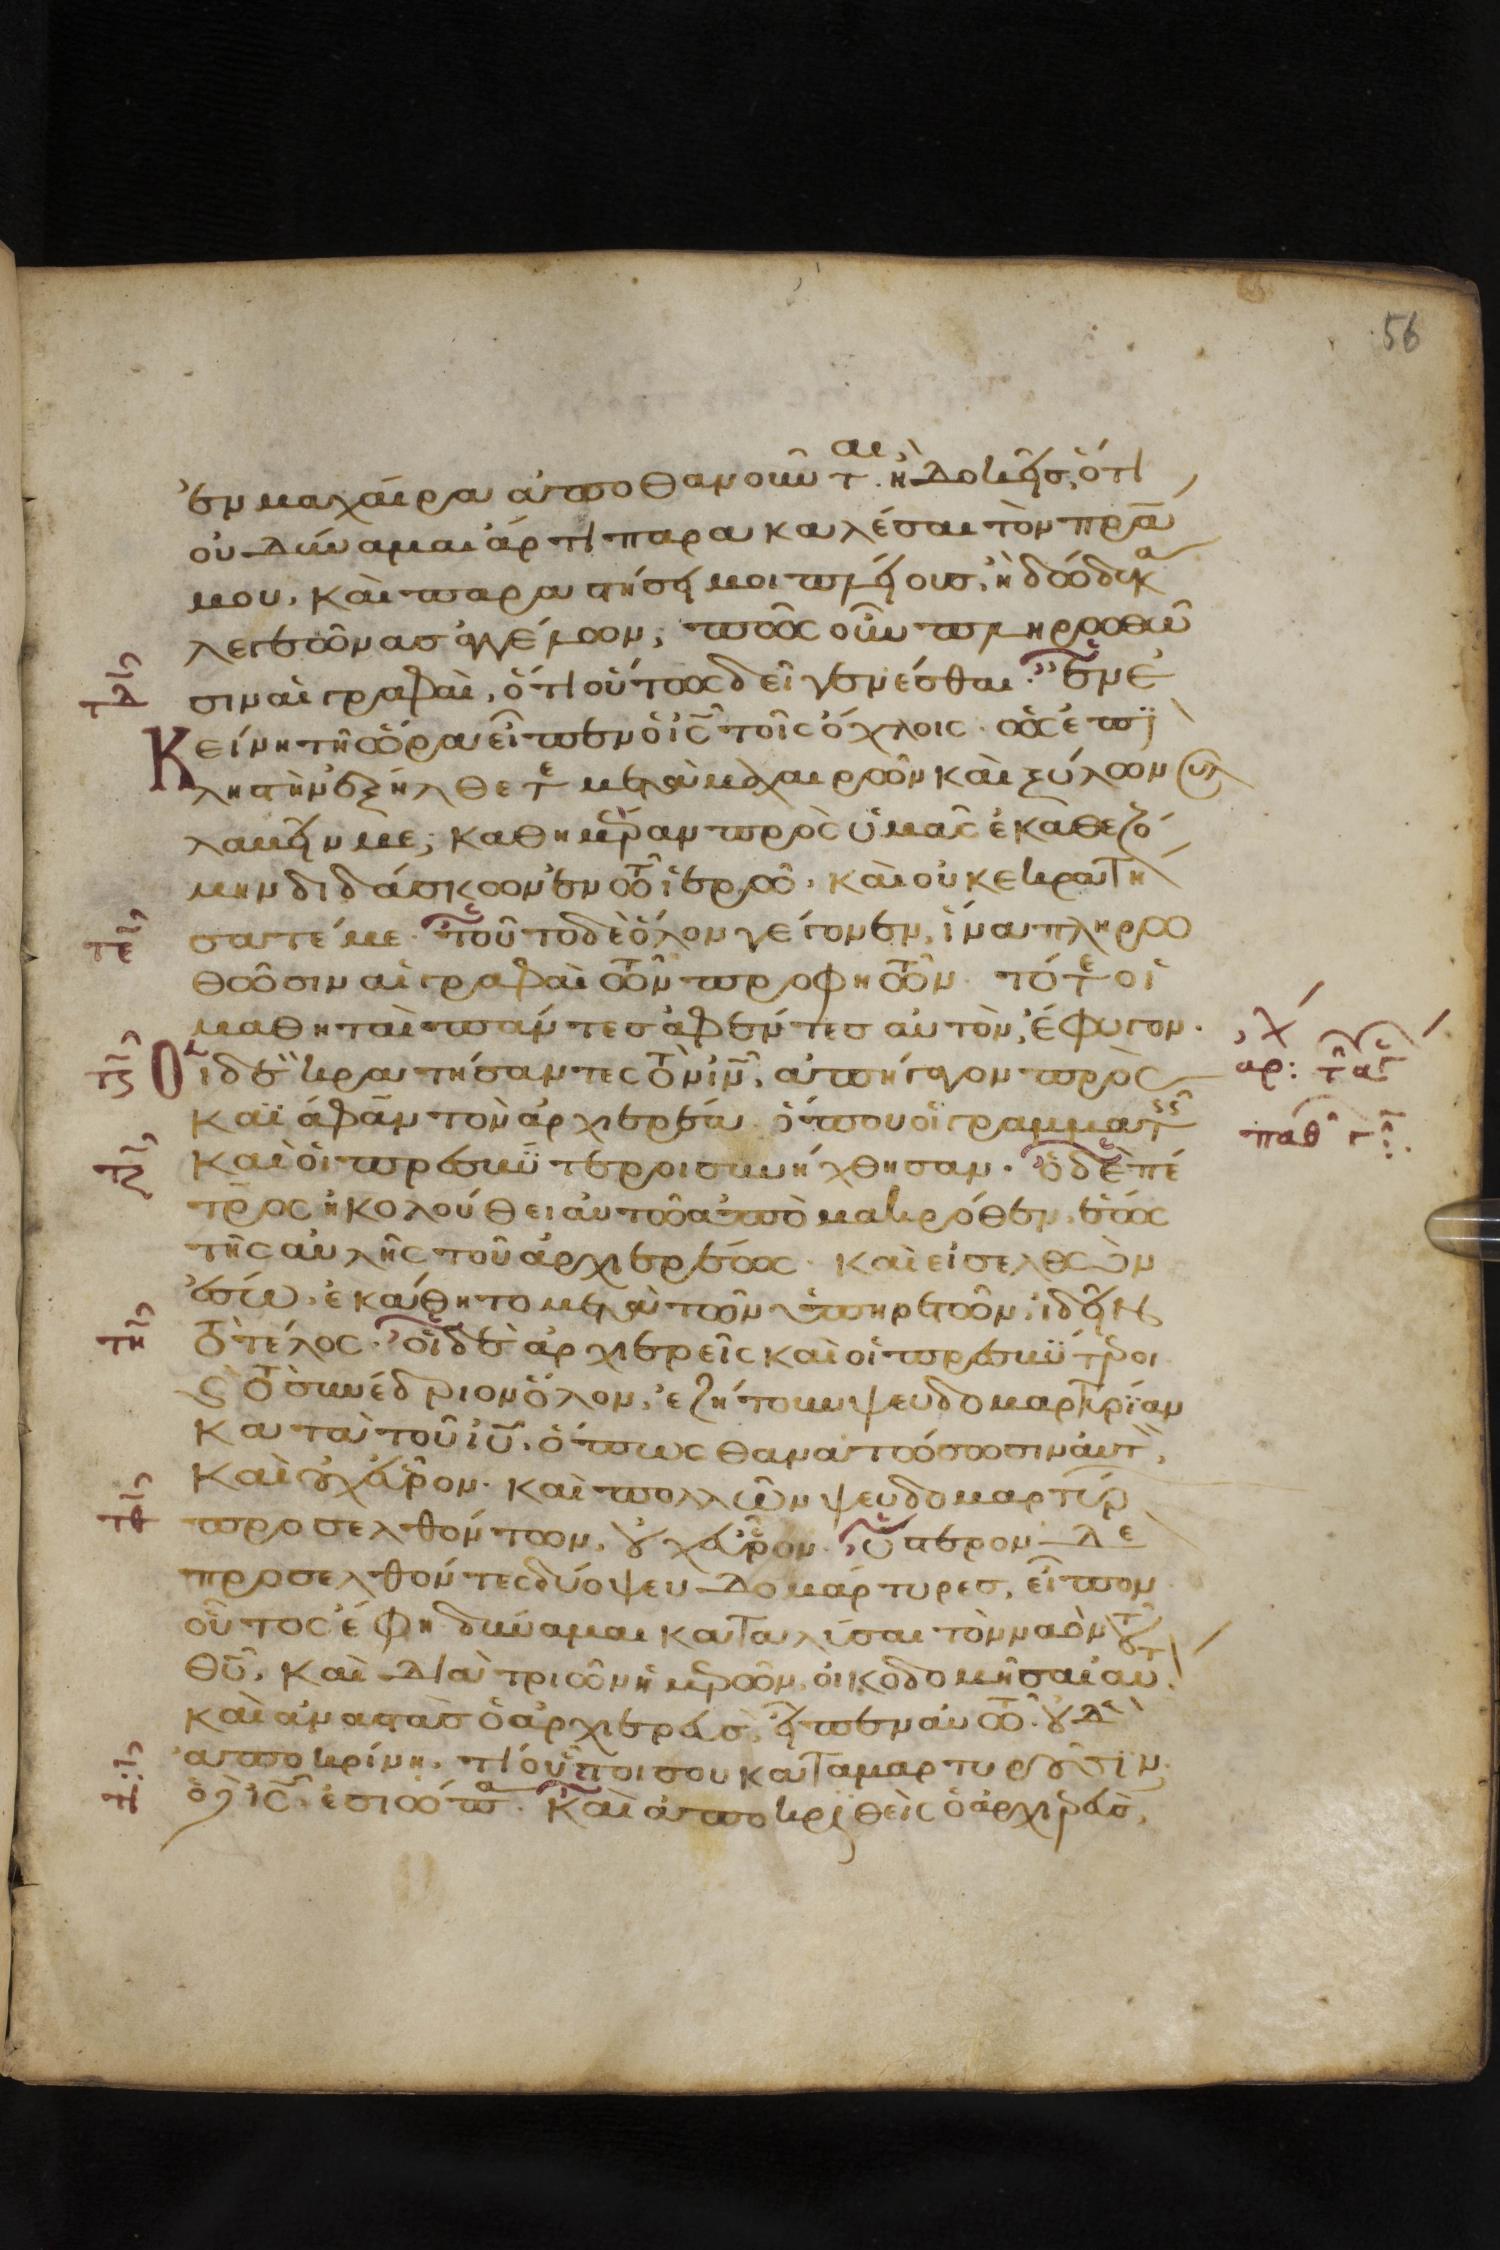 56
ἐν μαχαίρα ἀποθανοῦνται. ἢ δοκεῖς, ὅτι
οὐ δύναμαι ἄρτι παρακαλέσαι τὸν πρᾱ
μου, καὶ παραστήσει μοι πλείους, ἢ δώδεκα
λεγεῶνας ἀγγέλων; πῶς οὖν πληρωθῶ
σιν αἱ γραφαὶ, ὅτι οὕτως δεῖ γενέσθαι. ἐν ἐ
κείνη τῆ ὥρα εἶπεν ὁ ις̅ τοῖς ὄχλοις. ὡς ἐπὶ
ληστὴν ἐξήλθετε μετὰ μαχαιρῶν καὶ ξύλων συλ
λαβεῖν με; καθημέραν πρὸς ὑμᾶς ἐκαθεζό
μην διδάσκων ἐν τῶ ἱερῶ, καὶ οὐκ ἐκρατή
σατέ με. τοῦτο δὲ ὅλον γέγονεν, ἵνα πληρω
θῶσιν αἱ γραφαὶ τῶν προφητῶν. τότε οἱ
μαθηταὶ πάντες ἀφέντες αὐτὸν, ἔφυγον.
Οἱ δὲ κρατήσαντες τὸν ιν̅, ἀπήγαγον πρὸς
καϊάφαν τὸν ἀρχιερέα. ὅπου οἱ γραμματεῖς
καὶ οἱ πρεσβύτεροι συνήχθησαν. ὁ δὲ πέ
τρος ἠκολούθει αὐτῶ ἀπὸ μακρόθεν, ἕως
τῆς αὐλῆς τοῦ ἀρχιερέως. καὶ εἰσελθὼν
ἔσω, ἐκάθητο μετὰ τῶν ὑπηρετῶν, ἰδεῖν
τὸ τέλος. οἱ δὲ ἀρχιερεῖς καὶ οἱ πρεσβύτεροι
καὶ τὸ συνέδριον ὅλον, ἐζήτουν ψευδομαρτυρίαν
κατὰ τοῦ ιυ̅, ὅπως θανατώσωσιν αὐτὸν,
καὶ οὐχ εὗρον. καὶ πολλῶν ψευδομαρτύρων
προσελθόντων, οὐχ εὗρον. ὕστερον δὲ
προσελθόντες δύο ψευδομάρτυρες, εἶπον
οὗτος ἔφη δύναμαι καταλῦσαι τὸν ναὸν τοῦ
θυ̅, καὶ διὰ τριῶν ἡμερῶν, οἰκοδομῆσαι αὐτὸν.
καὶ ἀναστὰς ὁ ἀρχιερεὺς, εἶπεν αὐτῶ. οὐδὲν
ἀποκρίνη, τί οὗτοί σου καταμαρτυροῦσιν.
ὁ δὲ ις̅ ἐσιώπα. Καὶ ἀποκριθεὶς ὁ ἀρχιερεὺς,